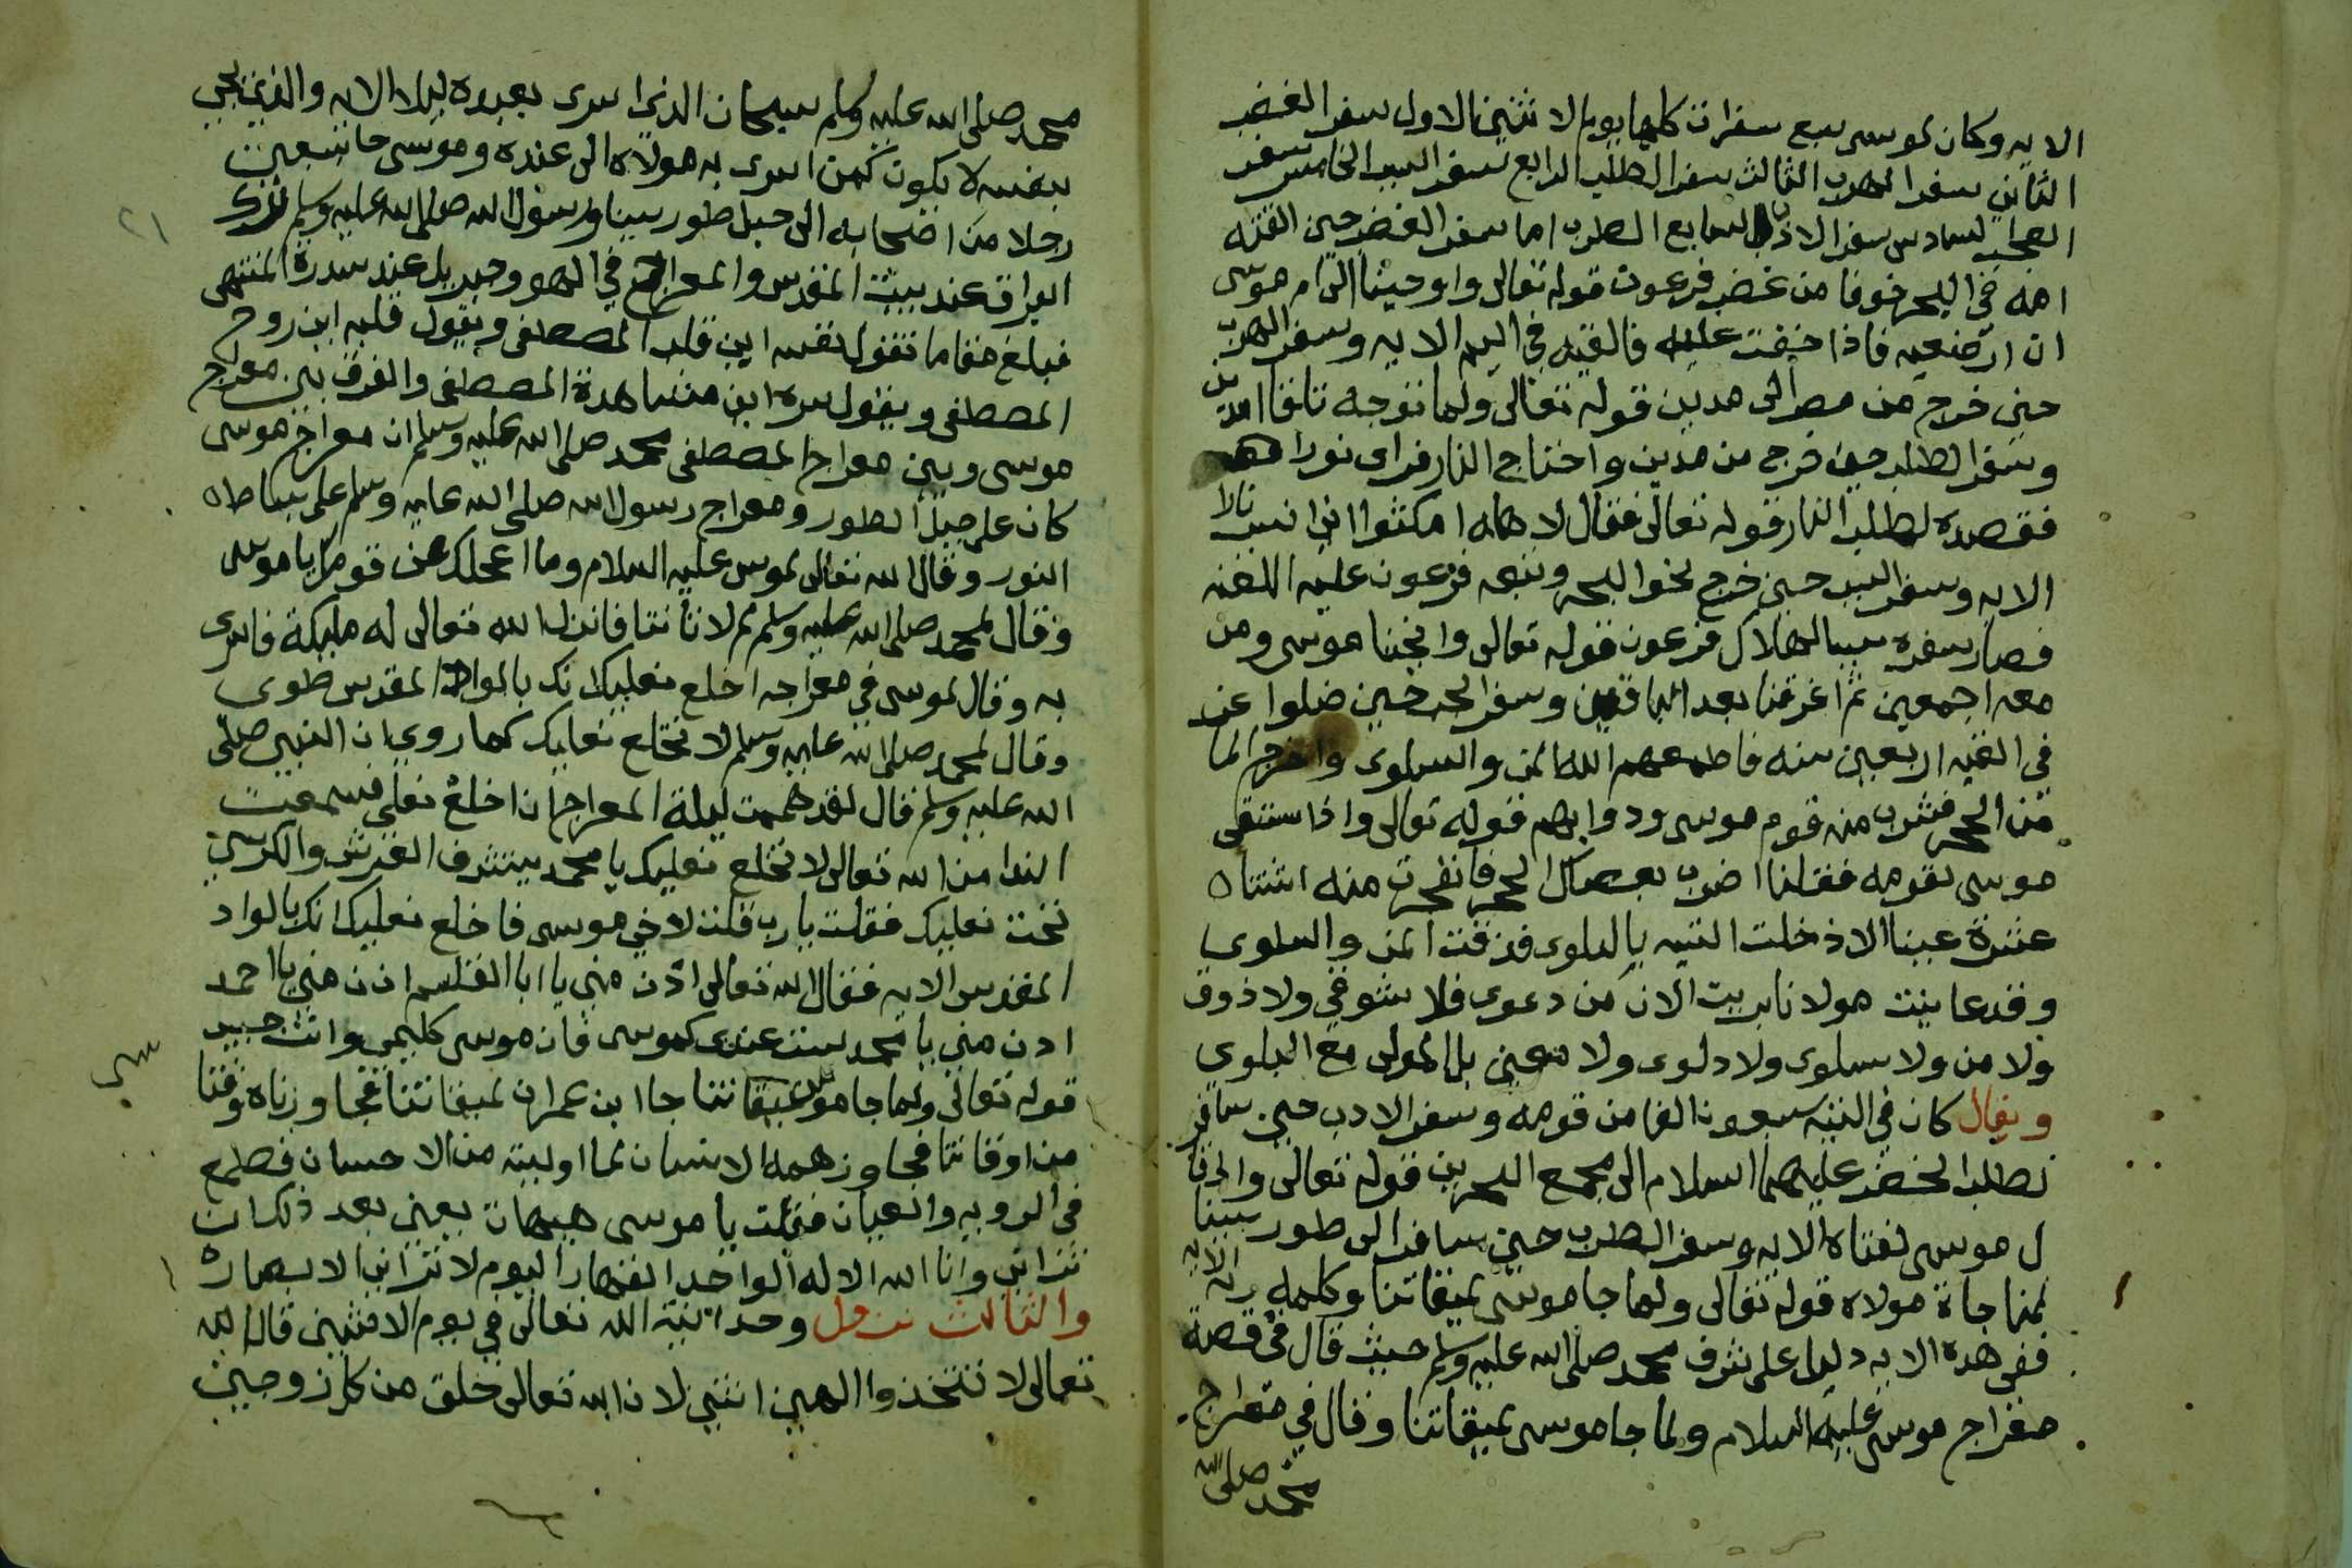 الايه وكان لموسى سبع سفرات كلها يوم الاثنين الاول سفر الغضب
الثاني سفر الهرب الثالث سفر الطلب الرابع سفر السبب الخامس سفر
العجب السادس سفر الادب السابع الطرب اما سفر الغضب حين القته
امه في البحر خوفا من غضب فرعون قوله تعالى واوحينا الى ام موسى
ان ارضعيه فاذا خفت عليه فالقيه في اليم الايه وسفر الهرب
حين خرج من مصر الى مدين قوله تعالى ولما توجه تلقا مدين
وسفر الطلب حين خرج من مدين واحتاج النار فراى نورا
فقصده لطلب النار قوله تعالى فقال لاهله امكثوا اني انست نارا
الايه وسفر السبب حين خرج نحو البحر وتبعه فرعون عليه اللعنه
فصار سفره سببا لهلاك فرعون قوله تعالى وانجينا موسى ومن
معه اجمعين ثم اغرقنا بعد الباقين وسفر حين ضلوا عن
في التيه اربعين سنه فاطعمهم الله المن والسلوى واخرج الما
من الحجر فشرب منه قوم موسى ودوابهم قوله تعالى واذا ستقى
موسى لقومه فقلنا اضرب بعصاك الحجر فانفجرت منه اثنتاه
عشرة عينا الا دخلت التيه بالبلوى فرزقت المن والسلوى
وقد عاينت مولانا بريت الان من دعوى فلا شوقي ولا ذوق
ولا من ولا سلوى ولا دلوى ولا معين بل المولى مع البلوى
ويقال كان في التيه سبعون الفا من قومه وسفر الادب حين سافر
لطلب الخضر عليهما السلام الى مجمع البحرين قوله تعالى واذ قا
ل موسى لفتاه الايه وسفر الطرب حين سافر الى طور سينا
لمناجاة مولاه قوله تعالى ولما جا موسى لميقاتنا وكلمه ربه الايه
ففي هذه الايه دليل على شرف محمد صلى الله عليه وسلم حيث قال في قصة
معراج موسى عليه السلام ولما جا موسى لميقاتنا وقال في معراج
محمد صلى الله
محمد صلى الله عليه وسلم سبحان الذي اسرى بعبده ليلا الايه والذي يجي
بنفسه لا يكون كمن اسرى به مولاه الى عنده وموسى جا بسبعين
رجلا من اصحابه الى جبل طور سينا ورسول الله صلى الله عليه وسلم ترك
البراق عند بيت المقدس والمعراج في الهو وجبريل عند سدرة المنتهى
فبلغ مقاما تقول نفسه اين قلب المصطفى ويقول قلبه اين روح
المصطفى ويقول سره اين مشاهدة المصطفى والفرق بين معراج
موسى وبين معراج المصطفى محمد صلى الله عليه وسلم ان معراج موسى
كان على جبل الطور ومعراج رسول الله صلى الله عليه وسلم على بساط
النور وقال الله تعالى لموسى عليه السلام وما اعجلك عن قومك يا موسى
وقال لمحمد صلى الله عليه وسلم لم لا تاتنا فانزل الله تعالى له مليكة فاسرى
به وقال لموسى في معراجه اخلع نعليك انك بالواد المقدس طوى
وقال لمحمد صلى الله عليه وسلم لا تخلع نعليك كما روي ان النبي صلى
الله عليه وسلم قال لقد هممت ليلة المعراج ان اخلع نعلي فسمعت
الندا من الله تعالى لا تخلع نعليك يا محمد يتشرف العرش والكرسي
تحت نعليك فقلت يا رب قلت لاخي موسى فاخلع نعليك انك بالواد
المقدس الايه فقال الله تعالى ادن مني يا ابا القاسم ادن مني يا احمد
ادن مني يا محمد لست عندي كموسى فان موسى كليمي وانت حبيبي
قوله تعالى ولما جا موسى لميقاتنا جا ابن عمران لميقاتنا فجاوزناه وقتا
من اوقاتنا فجاوز همه الانسان لما اوليته من الاحسان فطمع
في الرويه والعيان فقلت يا موسى هيهات يعني بعد ذلك ان
تراني وانا الله الاله الواحد القهار اليوم لا تراني الابصار
والثالث نزول وحدانية الله تعالى في يوم الاثنين قال الله
تعالى لا تتخذوا الهين اثنين لان الله تعالى خلق من كل زوجين